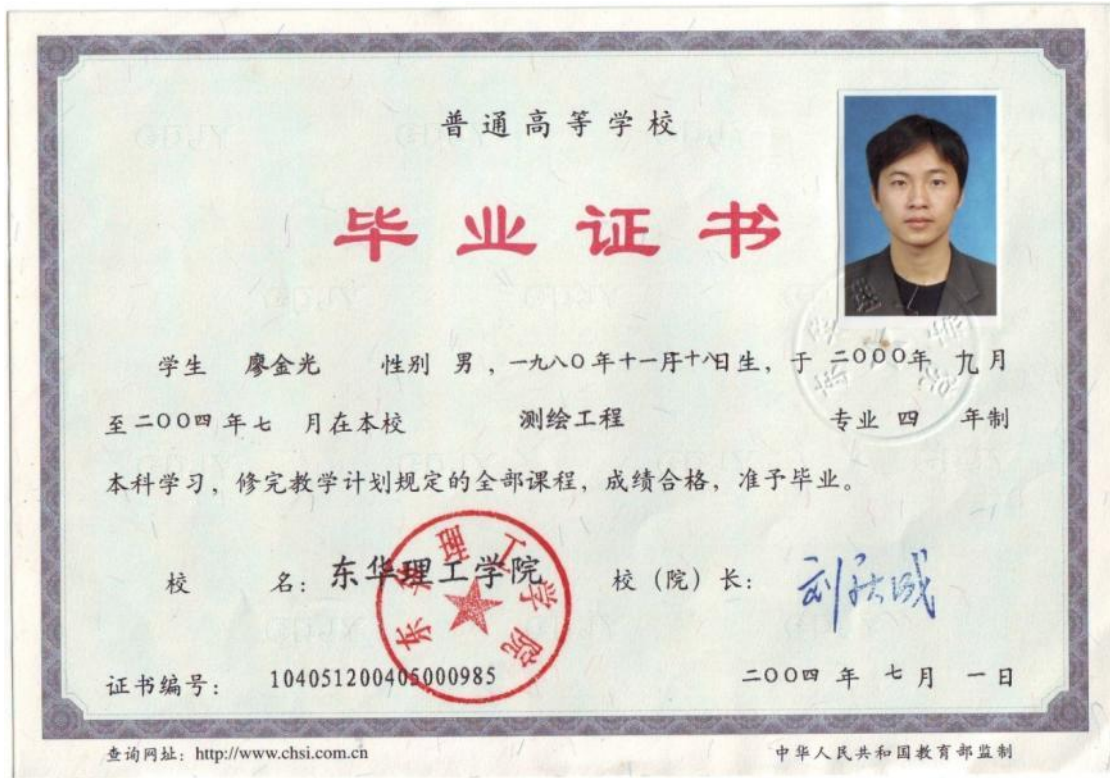 普通高等学校
毕业证书
学生 廖金光 性别 男，一九八〇年十一月十八日生，于 二〇〇〇年 九月
至二〇〇四年七 月在本校 测绘工程 专业 四 年制
本科学习，修完教学计划规定的全部课程，成绩合格，准予毕业。
校 名：东华理工学院 校（院）长：
东华理工学院
证书编号： 104051200405000985 二〇〇四 年 七月 一日
查询网址：http://www.chsi.com.cn 中华人民共和国教育部监制